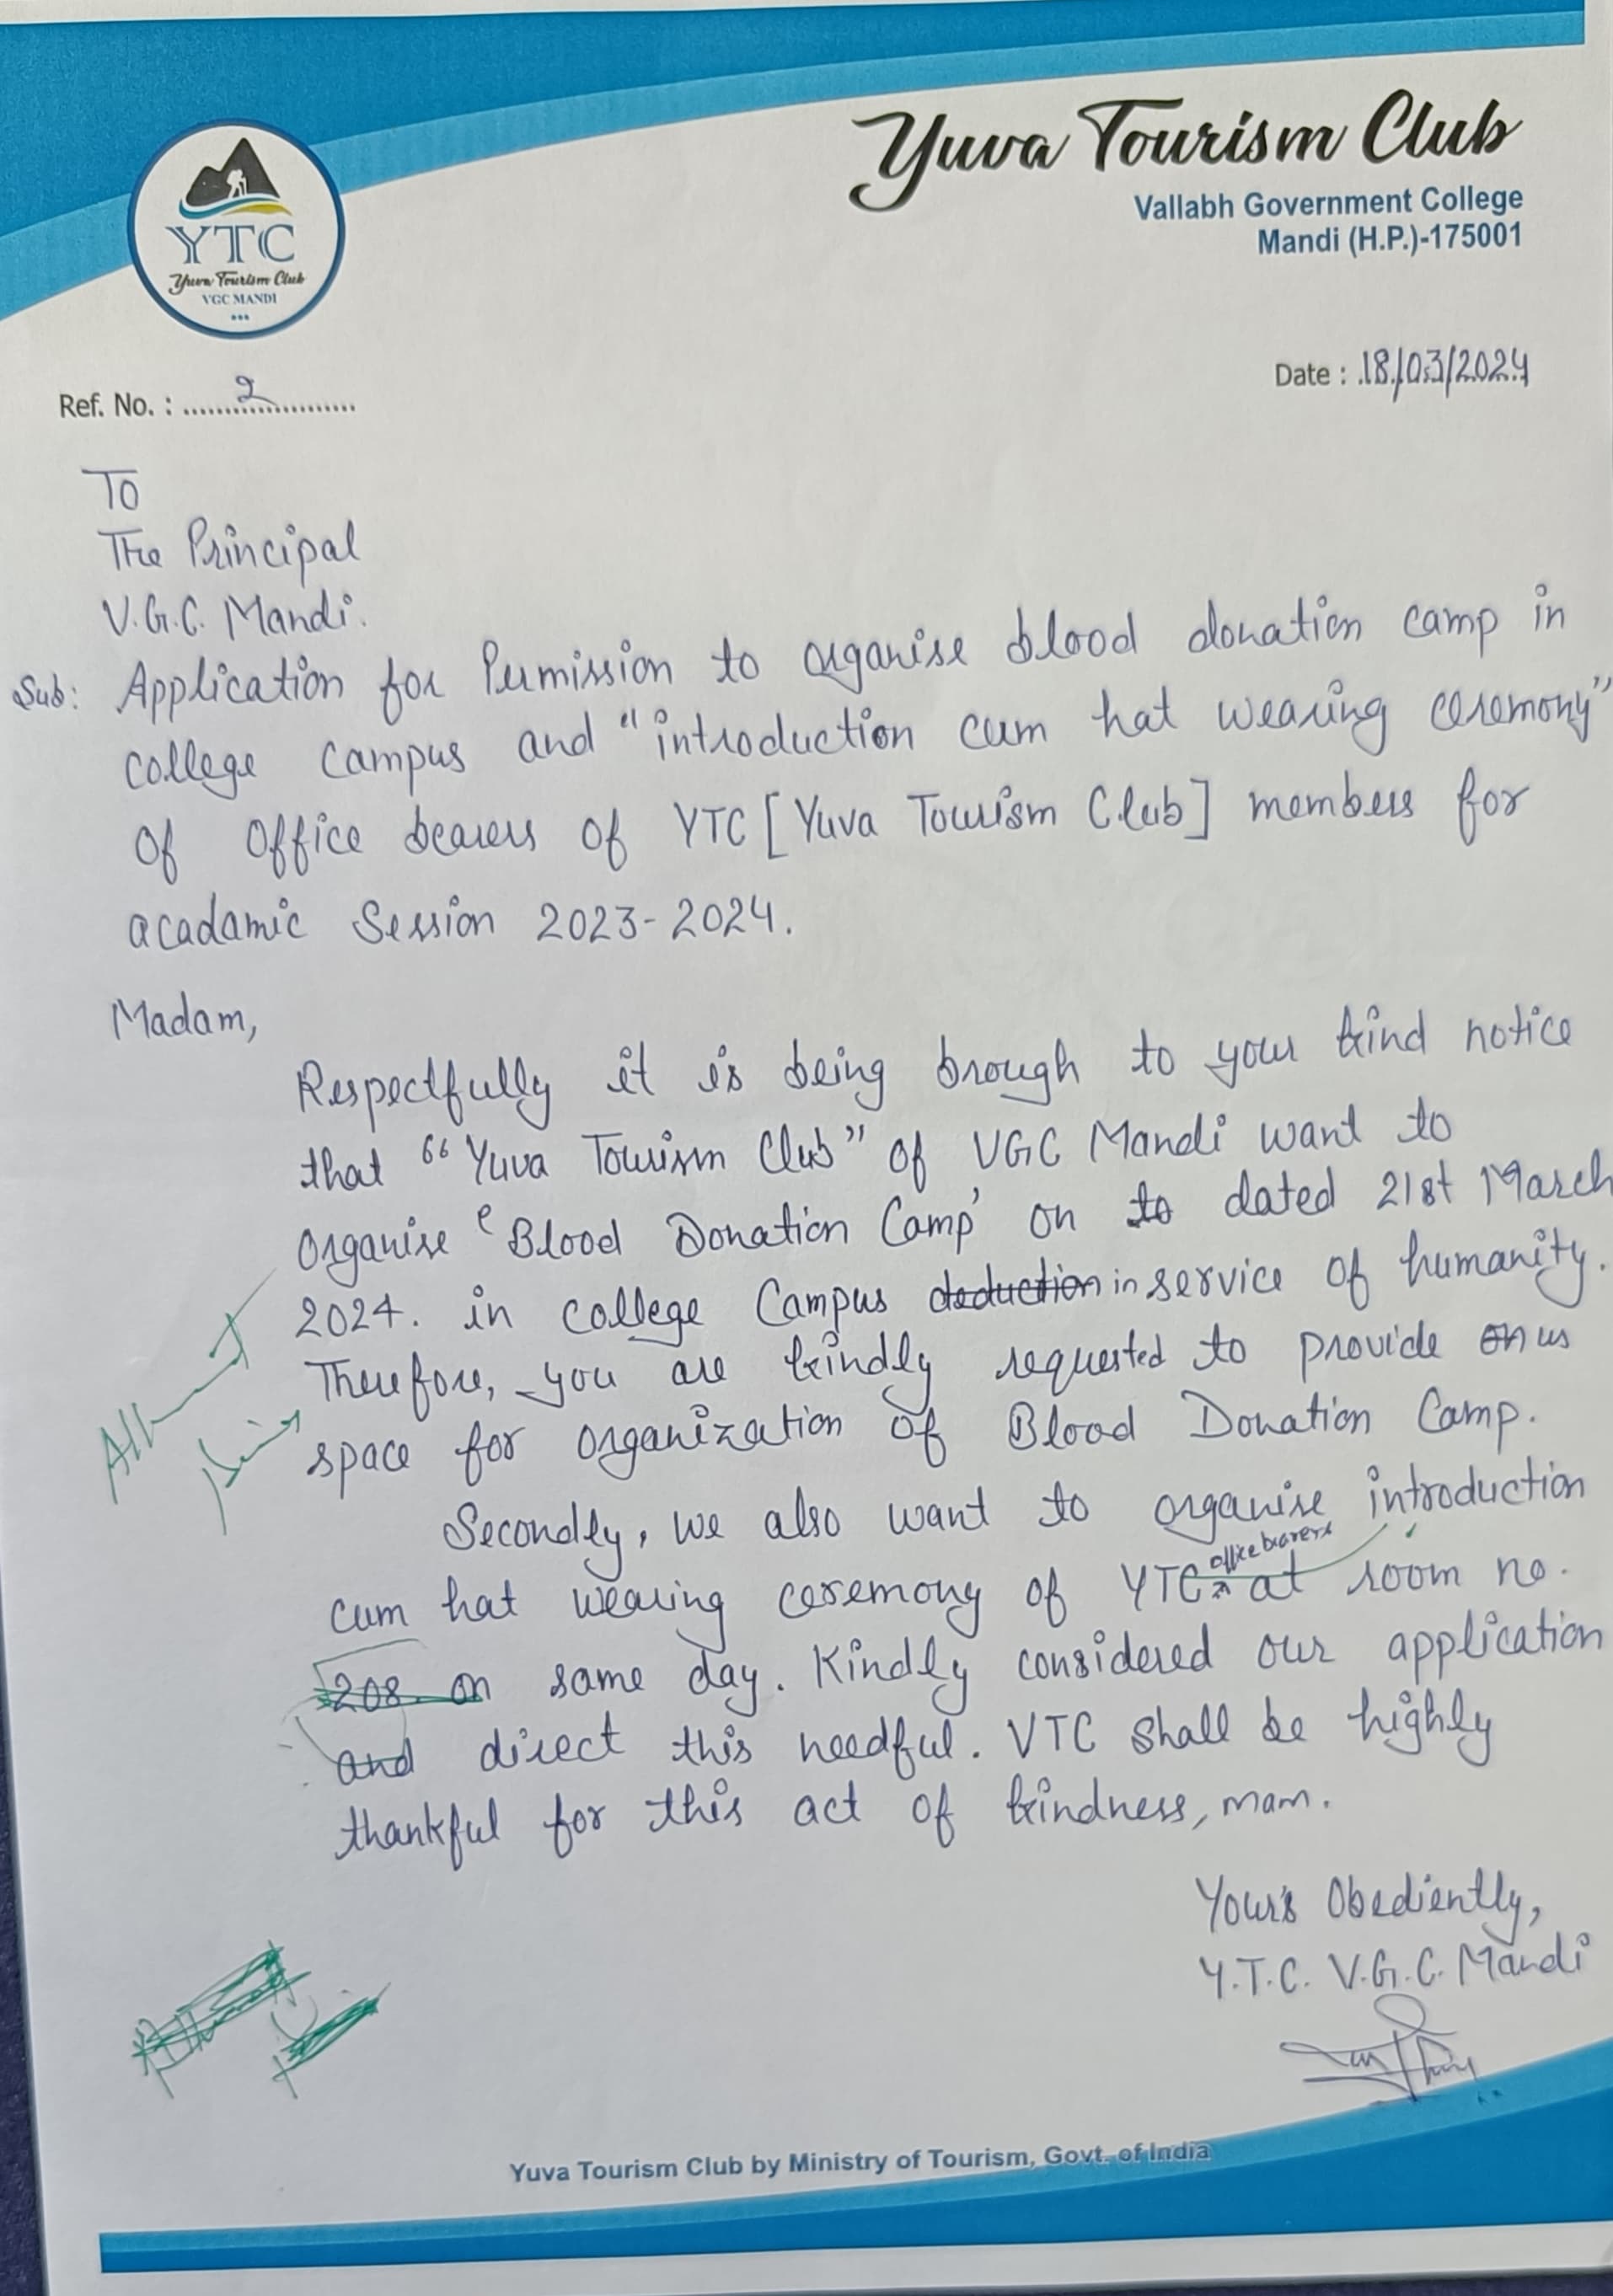 Yuva Tourism Club
Vallabh Government College
Mandi (H.P.)-175001
YTC
Yuva Tourism Club
VGC MANDI
Ref. No. : 2
Date : 18/03/2024
To
The Principal
V.G.C. Mandi.
Sub: Application for Permission to organise blood donation camp in
college campus and "introduction cum hat wearing ceremony"
of Office bearers of YTC [Yuva Tourism Club] members for
acadamic Session 2023-2024.
Madam,
Respectfully it is being brough to your kind notice
that "Yuva Tourism Club" of VGC Mandi want to
organise 'Blood Donation Camp' on to dated 21st March
2024. in college Campus deduction in service of humanity.
Therefore, you are kindly requested to provide us
space for organization of Blood Donation Camp.
Secondly, we also want to organise introduction
office bearers
cum hat wearing ceremony of YTC at room no.
208 on same day. Kindly considered our application
and direct this needful. VTC shall be highly
thankful for this act of kindness, mam.
Your's Obediently,
Y.T.C. V.G.C. Mandi
Yuva Tourism Club by Ministry of Tourism, Govt. of India